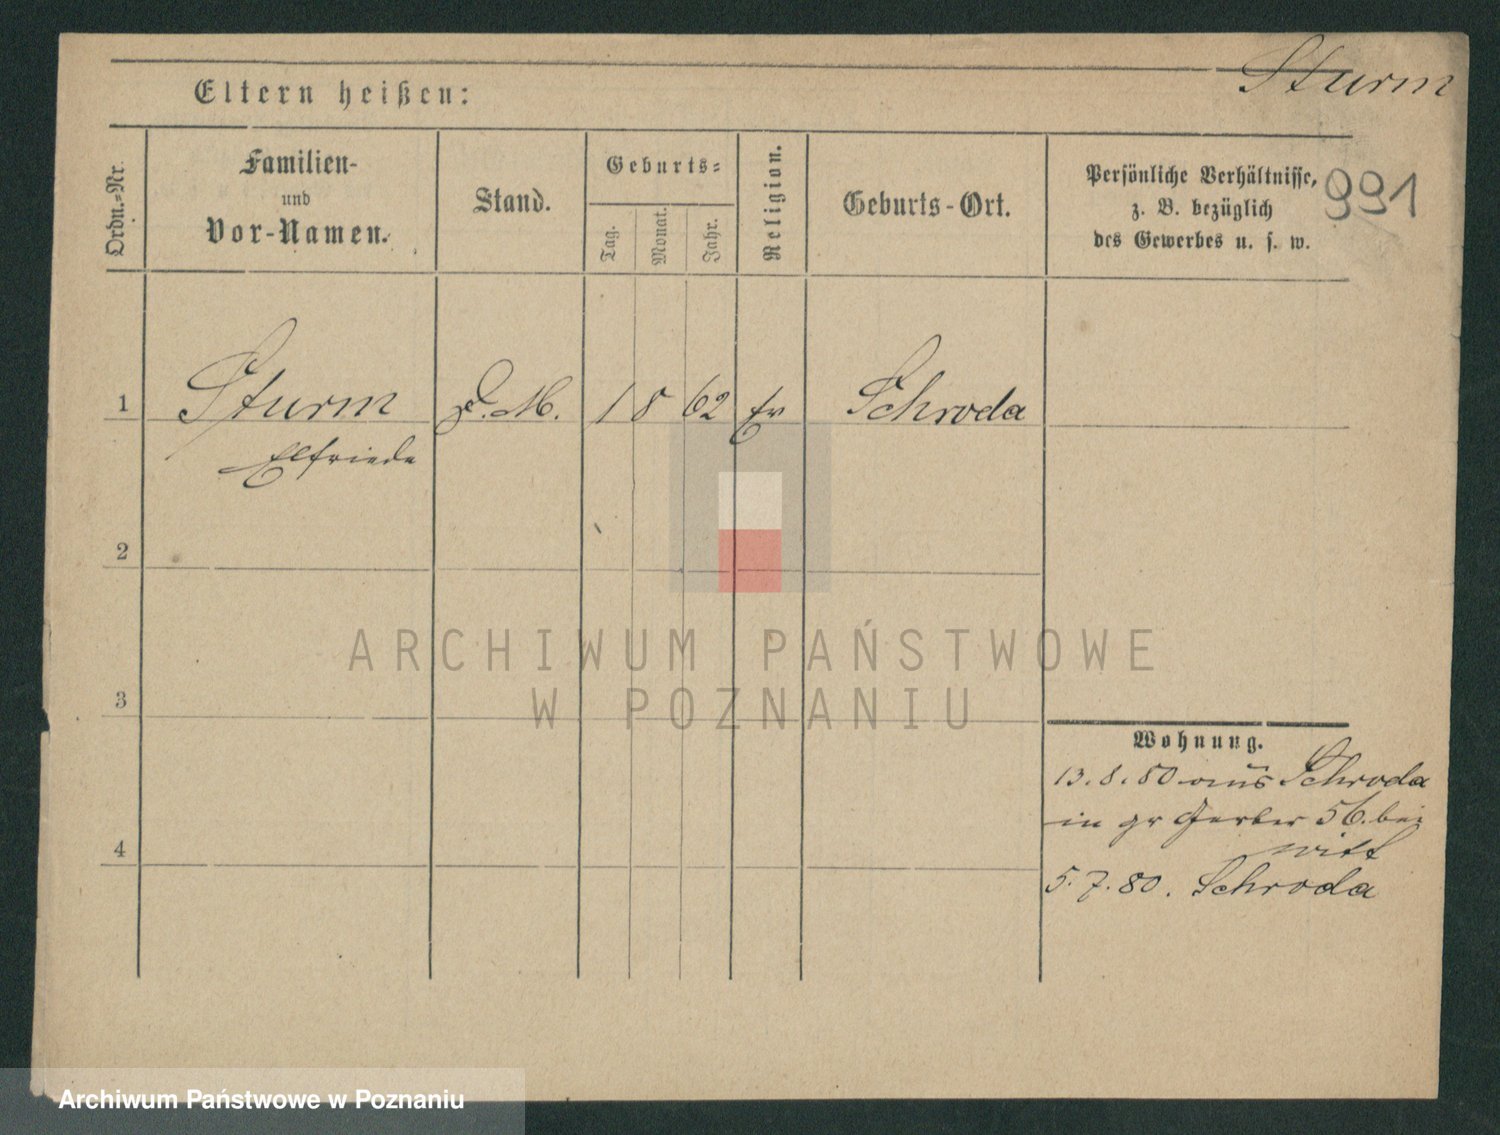 Sturm
Eltern heißen:
991
Ordn.-Nr.
Familien-
und
Vor-Namen.
Stand.
Geburts-
Tag.
Monat.
Jahr.
Religion.
Geburts-Ort.
Persönliche Verhältnisse,
z. B. bezüglich
des Gewerbes u. s. w.
1 Sturm D. M. 1 8 62 Ev Schroda
Elfriede
2
3
4
ARCHIWUM PAŃSTWOWE
W POZNANIU
Wohnung.
13.8.80 aus Schroda
in gr Gerber 56. bei
Witt
5.7.80. Schroda
Archiwum Państwowe w Poznaniu